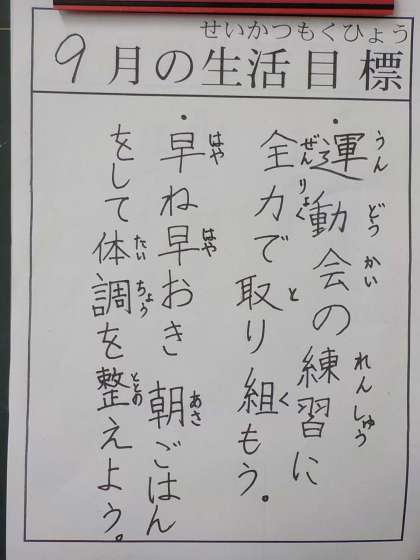 せいかつもくひょう
9月の生活目標
うんどうかい れんしゅう
・運動会の練習に
ぜんりょく と く
全力で取り組もう。
はや はや あさ
・早ね早おき 朝ごはん
たいちょう ととの
をして体調を整えよう。